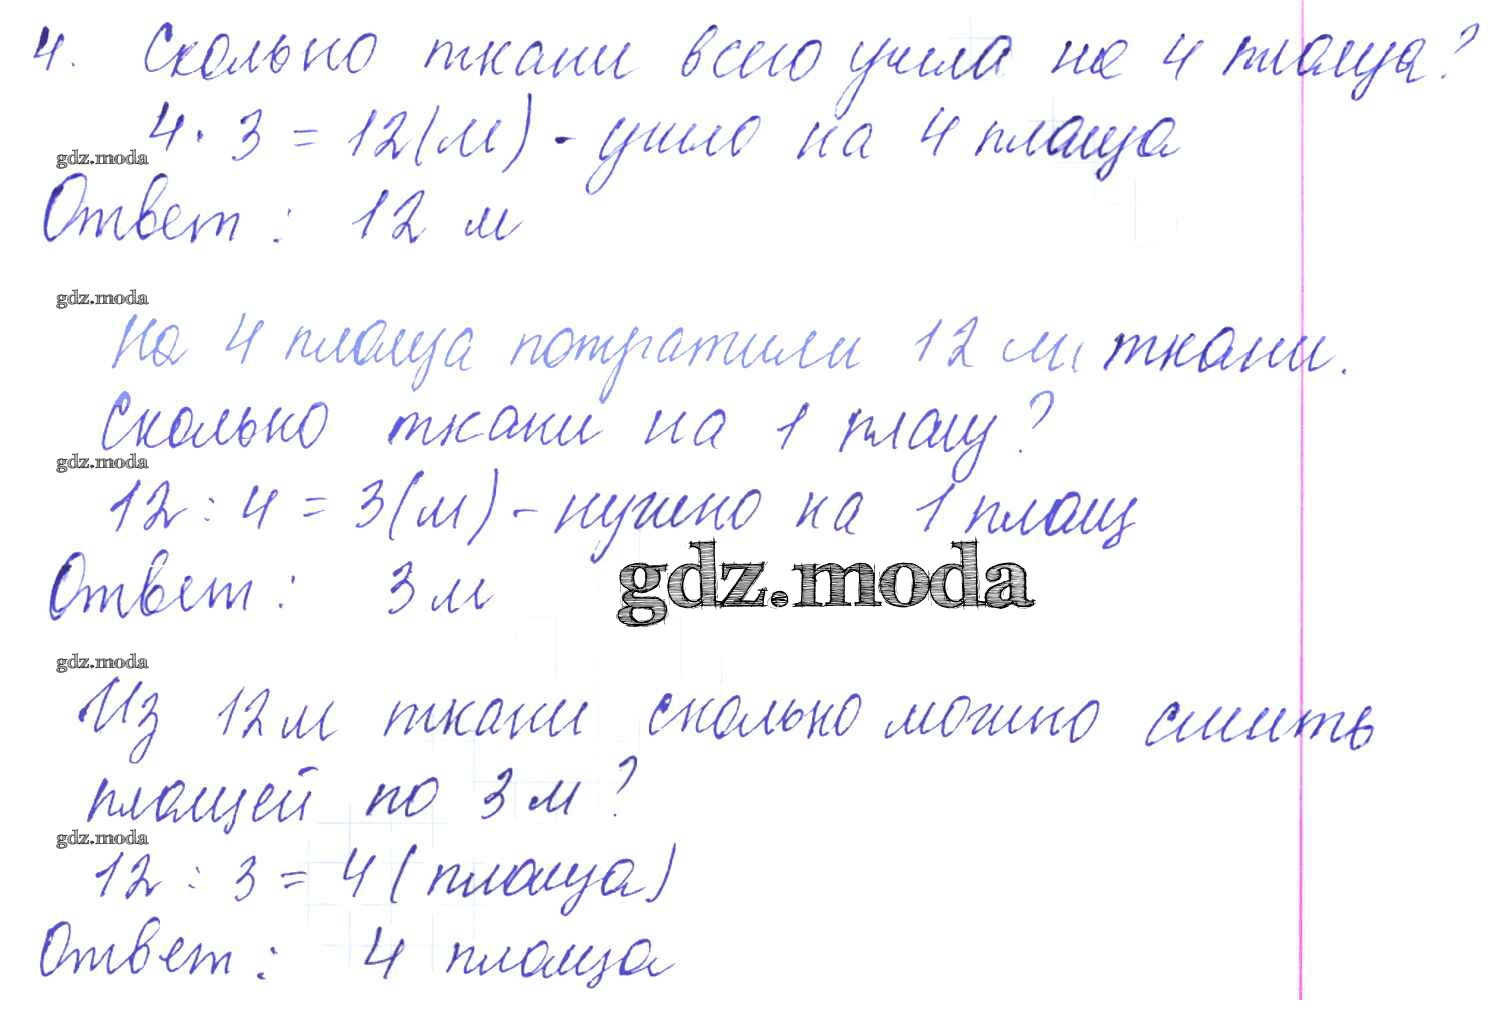 4. Сколько ткани всего ушла на 4 плаща?
4 · 3 = 12 (м) - ушло на 4 плаща
gdz.moda
Ответ: 12 м
gdz.moda
На 4 плаща потратили 12 м ткани.
Сколько ткани на 1 плащ?
gdz.moda
12 : 4 = 3 (м) - нужно на 1 плащ
Ответ: 3 м
gdz.moda
gdz.moda
Из 12 м ткани сколько можно сшить
плащей по 3 м?
gdz.moda
12 : 3 = 4 (плаща)
Ответ: 4 плаща